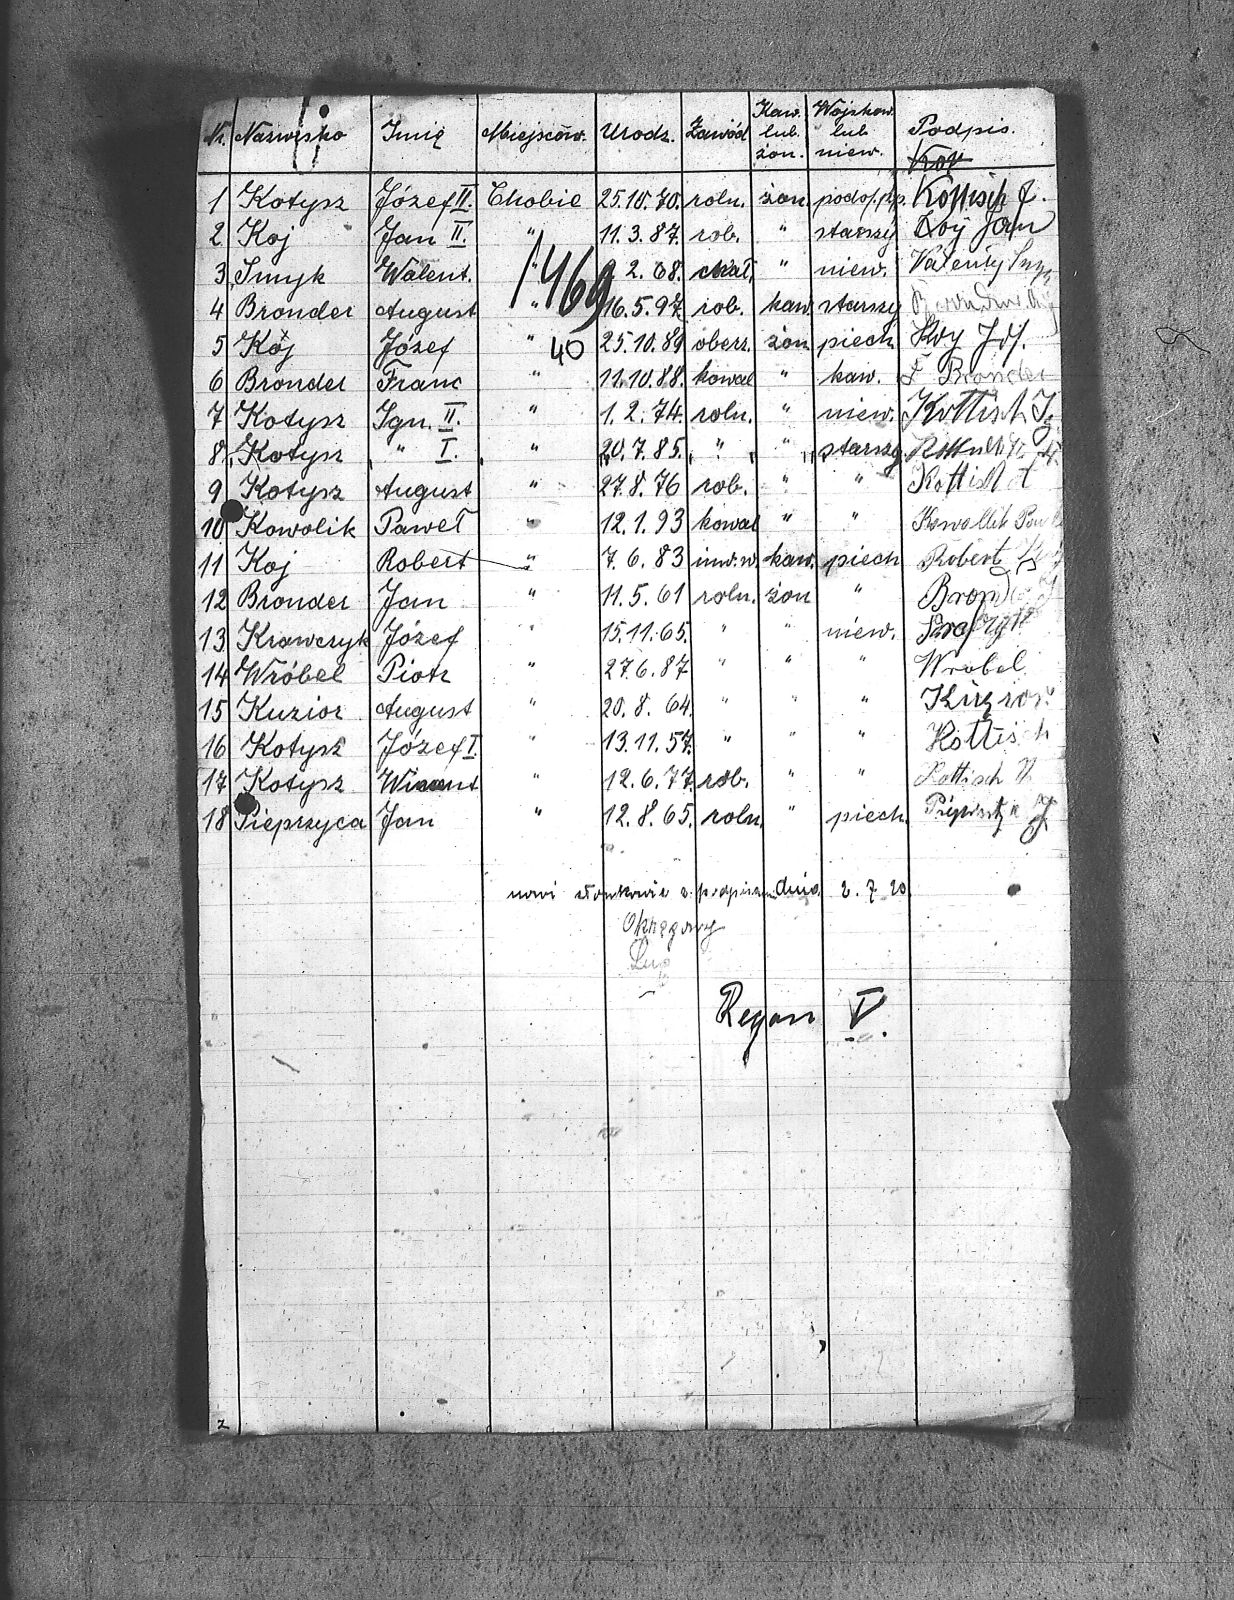 Nr. Nazwisko Imię Miejscow. Urodz. Zawód Kaw. lub żon. Wojskow. lub niew. Podpis.
Kov
1 Kotysz Józef II. Chobie 25.10.70. roln. żon. podof. Kottisch J.
2 Koj Jan II. " 11.3.87. rob. " starszy Koy Jan
3 Smyk Walent. " 9 2. 68. chał. " niew.
4 Bronder August " 16.5.97. rob. kaw. starszy
1469
5 Koj Józef " 25.10.89 oberż. żon piech Koy Jos.
40
6 Bronder Franc " 11.10.88. kowal " kaw. F Bronder
7 Kotysz Ign. II. " 1. 2. 74. roln. " niew. Kottisch Ig
8 Kotysz " I. " 20. 7. 85. " " starszy
9 Kotysz August " 27.8.76 rob. " " Kottisch A
10 Kowolik Paweł " 12.1.93 kowal " " Kowallik Paul
11 Koj Robert " 7. 6. 83 inw.w. kaw. piech Robert
12 Bronder Jan " 11. 5. 61 roln. żon " Bronder J
13 Krawczyk Józef " 15.11.65. " " niew.
14 Wróbel Piotr " 27.6.87 " " " Wrobel
15 Kuzior August " 20. 8. 64. " " " Kuzior
16 Kotysz Józef I. " 13.11.57. " " " Kottisch
17 Kotysz Wincent " 12.6.77. rob. " " Kottisch V.
18 Pieprzyca Jan " 12. 8. 65. roln. " piech.
nowi członkowie z podpisem dnia. 2. 7 20
Okręgowy
Rejon V.
2